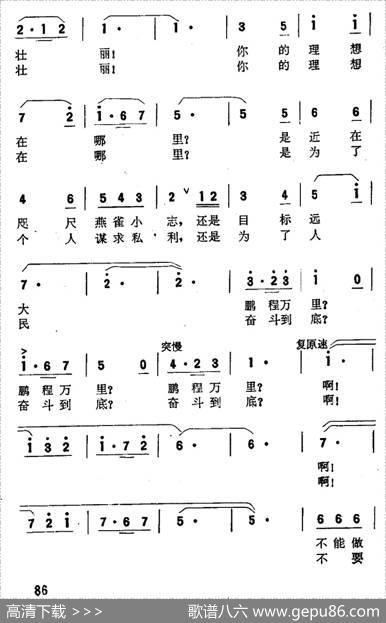 2·1 2 | 1· | 1· | 3 5 | i i
壮 丽！ 你 的 理 想
壮 丽！ 你 的 理 想
7 2 | i·6 7 | 5· | 5 5 | 6 i
在 哪 里？ 是 近 在
在 哪 里？ 是 为 了
4 6 | 5 4 3 | 2 12 | 3 4 | 5 i
咫 尺 燕雀小 志，还是 目 标 远
个 人 谋求私 利，还是 为 了 人
7· | 2· | 2· | 3·2 3 | i 0
大 鹏 程万 里？
民 奋 斗到 底？
突慢 复原速
i·6 7 | 5 0 | 4·2 3 | 1· | i·
鹏 程万 里？ 鹏 程万 里？ 啊！
奋 斗到 底？ 奋 斗到 底？ 啊！
i 3 2 | i·7 2 | 6· | 6· | 7·
啊！
啊！
7 2 i | 7·6 7 | 5· | 5· | 6 6 6
不能做
不 要
86
高清下载 >>> 歌谱八六 www.gepu86.com